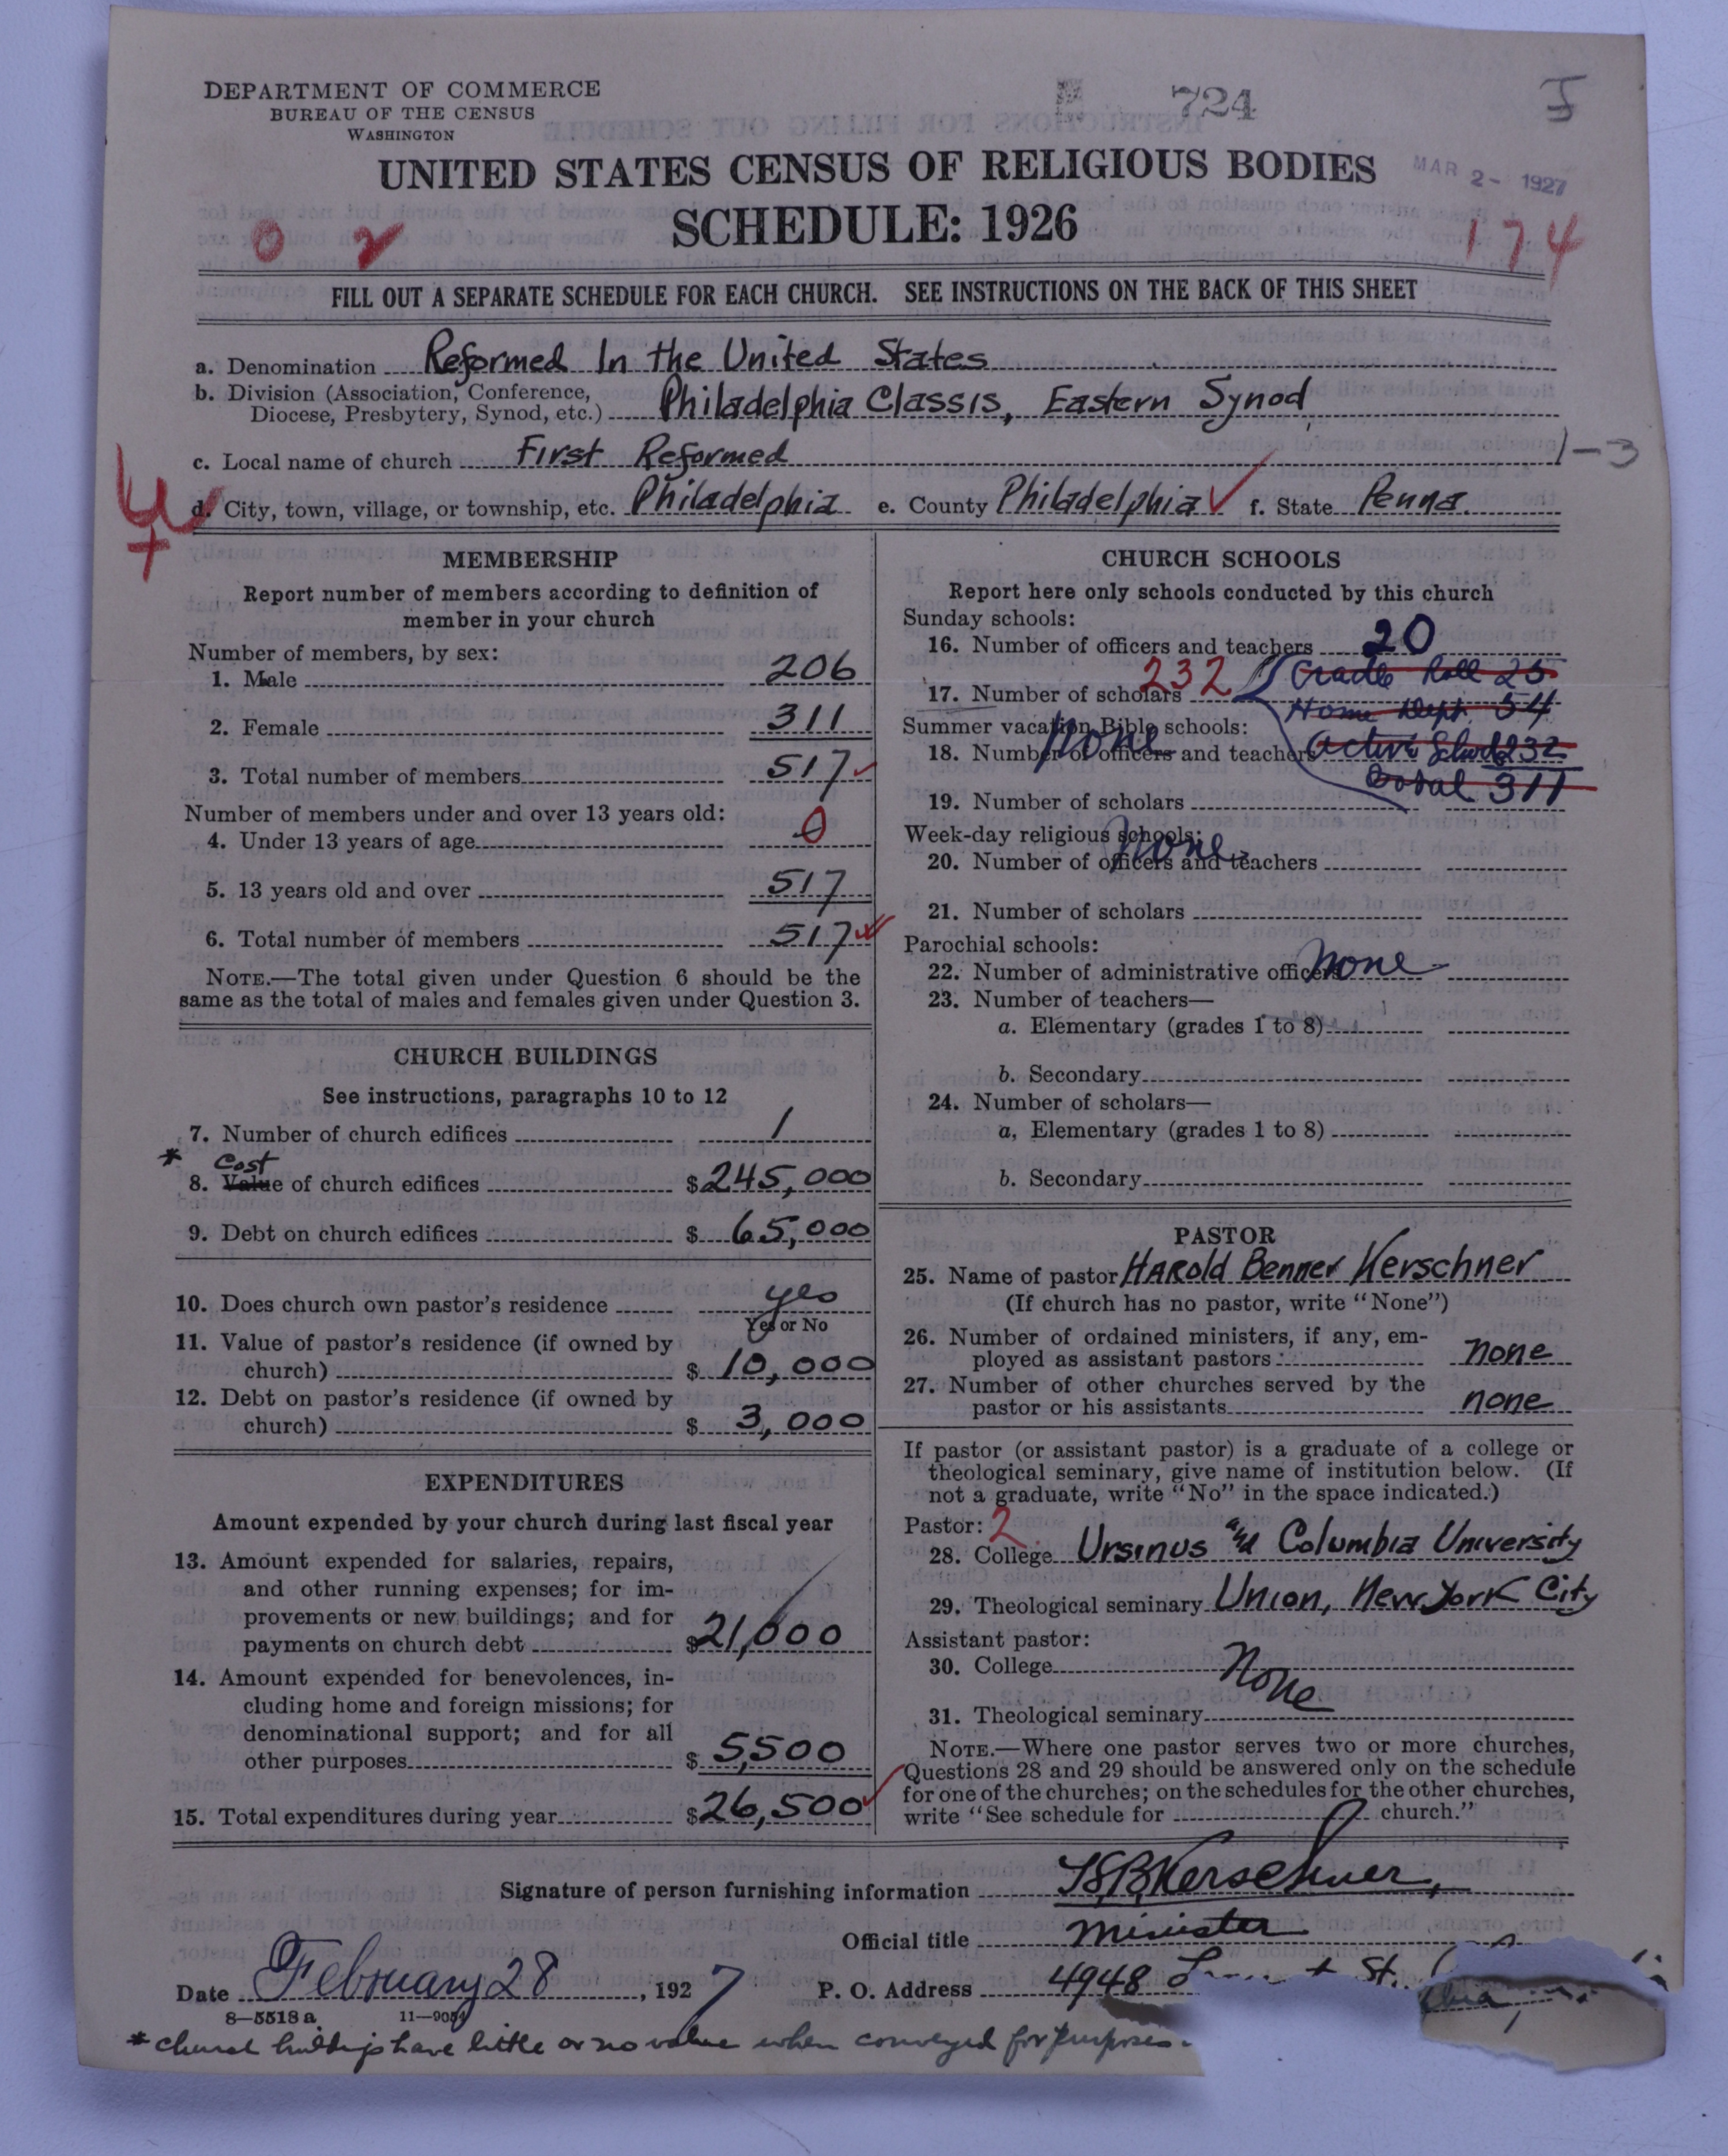 DEPARTMENT OF COMMERCE
BUREAU OF THE CENSUS
WASHINGTON
724
I
UNITED STATES CENSUS OF RELIGIOUS BODIES
MAR 2 - 1927
SCHEDULE: 1926
0 2
174
FILL OUT A SEPARATE SCHEDULE FOR EACH CHURCH. SEE INSTRUCTIONS ON THE BACK OF THIS SHEET
a. Denomination Reformed In the United States
b. Division (Association, Conference,
Diocese, Presbytery, Synod, etc.) Philadelphia Classis, Eastern Synod,
c. Local name of church First Reformed 1-3
d. City, town, village, or township, etc. Philadelphia e. County Philadelphia f. State Penna.
MEMBERSHIP
Report number of members according to definition of
member in your church
Number of members, by sex:
1. Male 206
2. Female 311
3. Total number of members 517
Number of members under and over 13 years old:
4. Under 13 years of age 0
5. 13 years old and over 517
6. Total number of members 517
NOTE.—The total given under Question 6 should be the
same as the total of males and females given under Question 3.
CHURCH BUILDINGS
See instructions, paragraphs 10 to 12
7. Number of church edifices 1
* Cost
8. Value of church edifices $245,000
9. Debt on church edifices $65,000
10. Does church own pastor's residence yes
Yes or No
11. Value of pastor's residence (if owned by
church) $10,000
12. Debt on pastor's residence (if owned by
church) $3,000
EXPENDITURES
Amount expended by your church during last fiscal year
13. Amount expended for salaries, repairs,
and other running expenses; for im-
provements or new buildings; and for
payments on church debt $21,000
14. Amount expended for benevolences, in-
cluding home and foreign missions; for
denominational support; and for all
other purposes $5,500
15. Total expenditures during year $26,500
CHURCH SCHOOLS
Report here only schools conducted by this church
Sunday schools:
16. Number of officers and teachers 20
Cradle Roll 25
17. Number of scholars 232
Home Dept. 54
Summer vacation Bible schools: none
Active School 232
18. Number of officers and teachers
Total 311
19. Number of scholars
Week-day religious schools: none
20. Number of officers and teachers
21. Number of scholars
Parochial schools:
22. Number of administrative officers none
23. Number of teachers—
a. Elementary (grades 1 to 8)
b. Secondary
24. Number of scholars—
a. Elementary (grades 1 to 8)
b. Secondary
PASTOR
25. Name of pastor Harold Benner Kerschner
(If church has no pastor, write "None")
26. Number of ordained ministers, if any, em-
ployed as assistant pastors none
27. Number of other churches served by the
pastor or his assistants none
If pastor (or assistant pastor) is a graduate of a college or
theological seminary, give name of institution below. (If
not a graduate, write "No" in the space indicated.)
Pastor: 2
28. College Ursinus and Columbia University
29. Theological seminary Union, New York City
Assistant pastor:
30. College None
31. Theological seminary
NOTE.—Where one pastor serves two or more churches,
Questions 28 and 29 should be answered only on the schedule
for one of the churches; on the schedules for the other churches,
write "See schedule for church."
Signature of person furnishing information H.B. Kerschner,
Official title Minister
Date February 28, 1927 P. O. Address 4948 St.
8—5518a 11—9054
* Church buildings have little or no value when conveyed for purposes